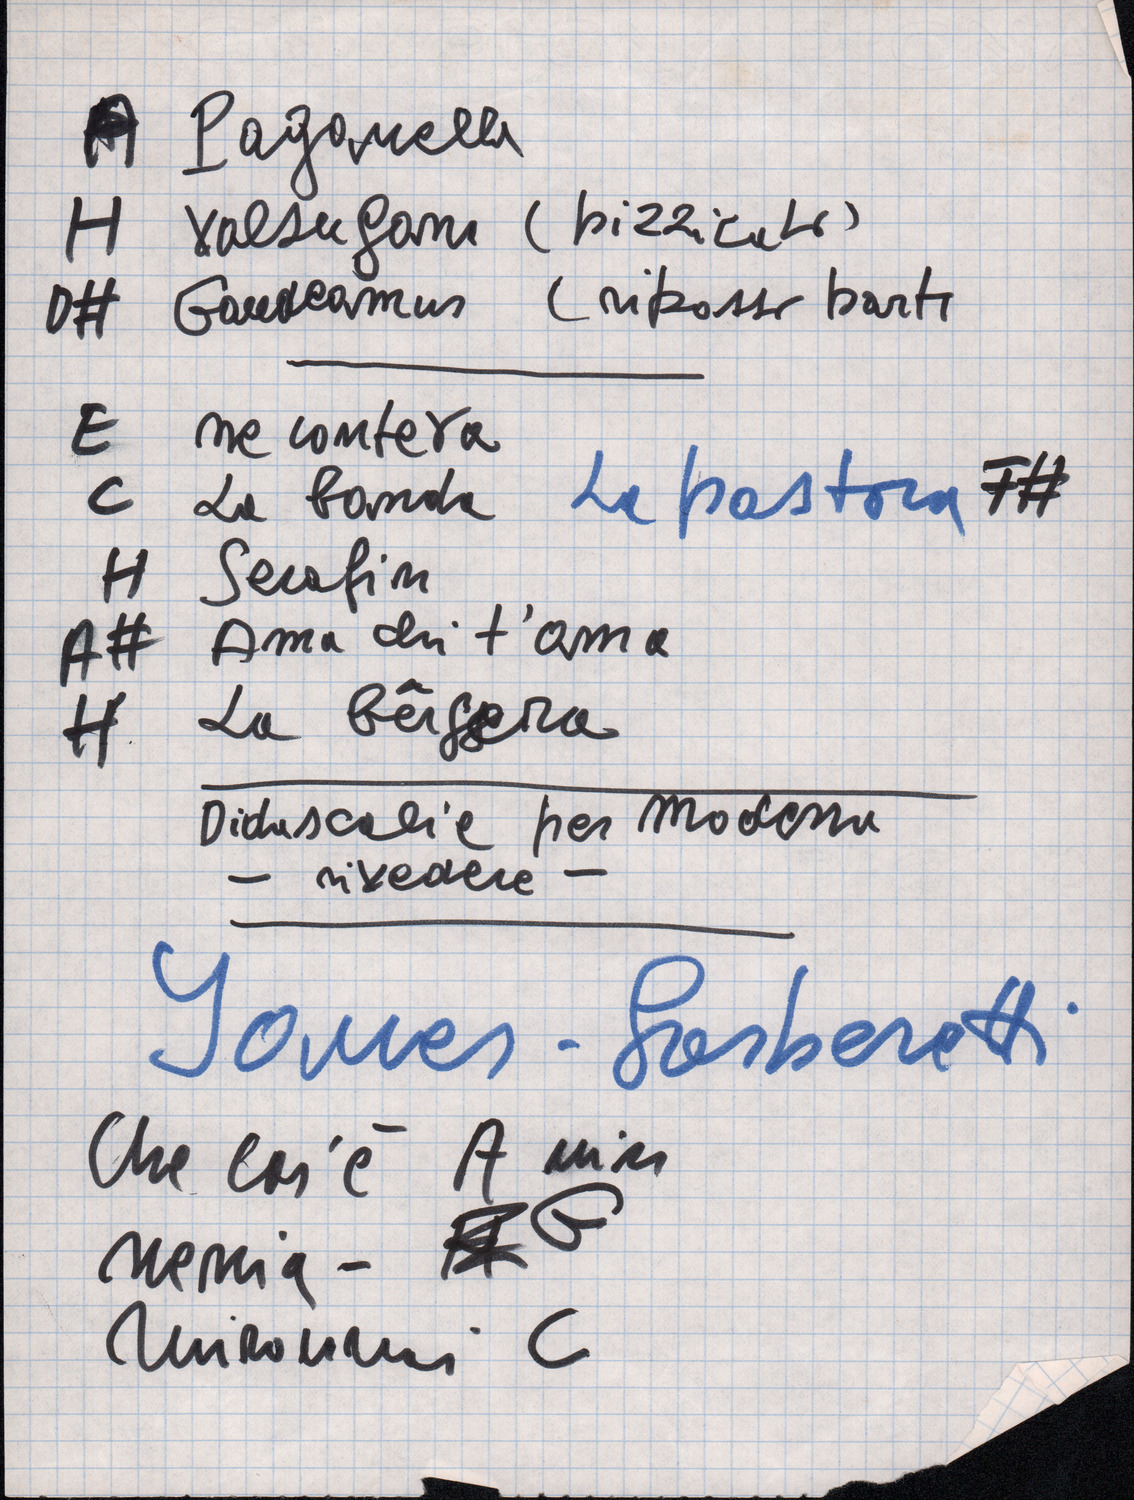 A Paganella
H Valsugana (pizzicato)
D# Gaudeamus (ripasso parti
E me conteva
C La banda La pastora F#
H Serafin
A# Ama chi t'ama
H La bêrgera
Didascalie per Modena
- rivedere -
Gasberetti
Che cos'è A min
nenia - G
C